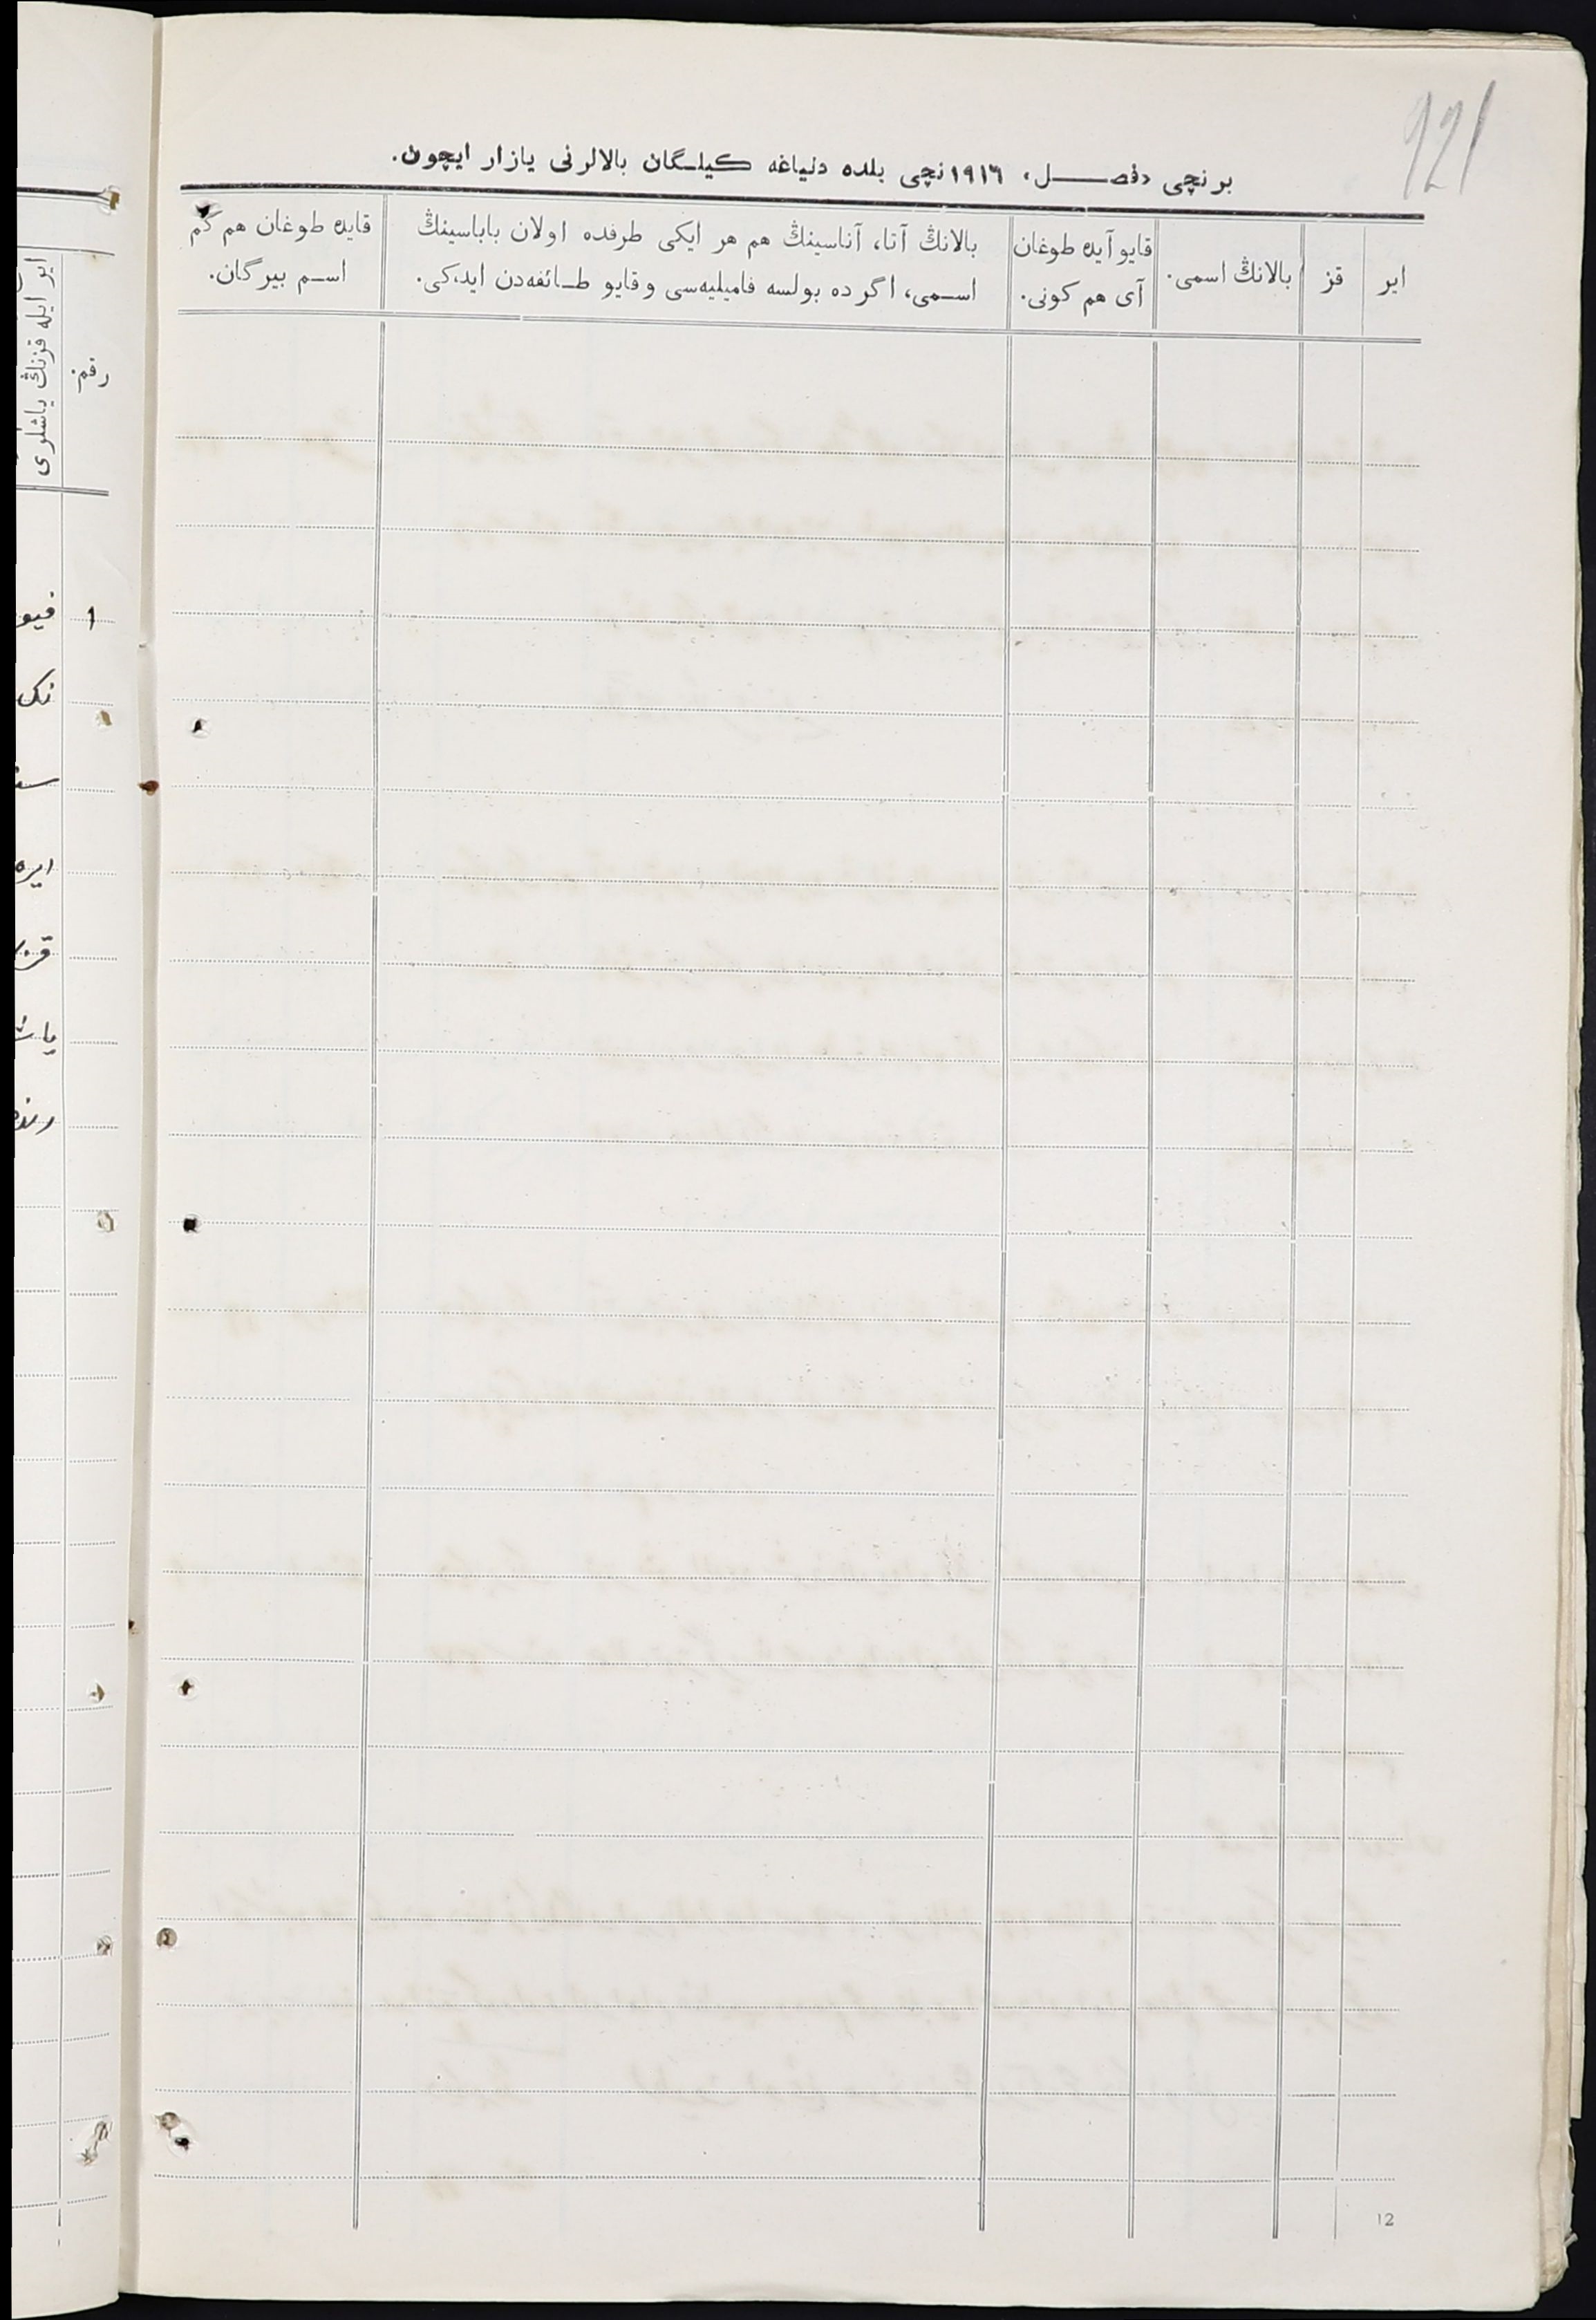 921
برنچی «فصل» ۱۹۱٦نچی یلده دنیاغه کیلگان بالالرنی یازار ایچون.
ایر
قز
بالانڭ اسمی.
قایو آیده طوغان
آی هم کونی.
بالانڭ آتا، آناسینڭ هم هر ایکی طرفده اولان باباسینڭ
اسمی، اگرده بولسه فامیلیه‌سی وقایو طائفه‌دن ایدکی.
قایده طوغان هم کم
اسم بیرگان.
رقم.
ایر ایله قزنڭ یاشلری
۱
12